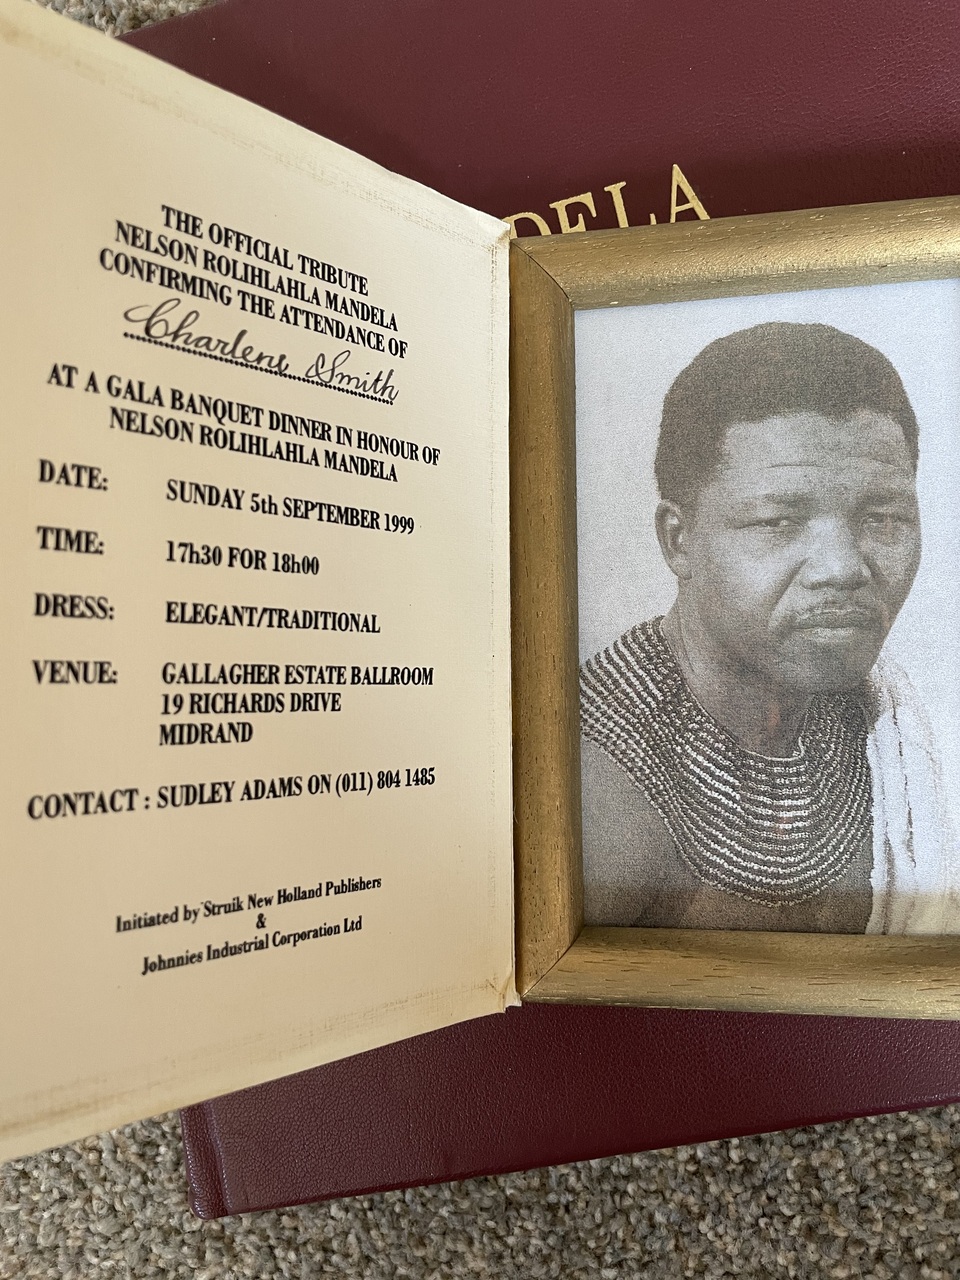 DELA
THE OFFICIAL TRIBUTE
NELSON ROLIHLAHLA MANDELA
CONFIRMING THE ATTENDANCE OF
Charlene Smith
AT A GALA BANQUET DINNER IN HONOUR OF
NELSON ROLIHLAHLA MANDELA
DATE: SUNDAY 5th SEPTEMBER 1999
TIME: 17h30 FOR 18h00
DRESS: ELEGANT/TRADITIONAL
VENUE: GALLAGHER ESTATE BALLROOM
19 RICHARDS DRIVE
MIDRAND
CONTACT : SUDLEY ADAMS ON (011) 804 1485
Initiated by Struik New Holland Publishers
&
Johnnies Industrial Corporation Ltd